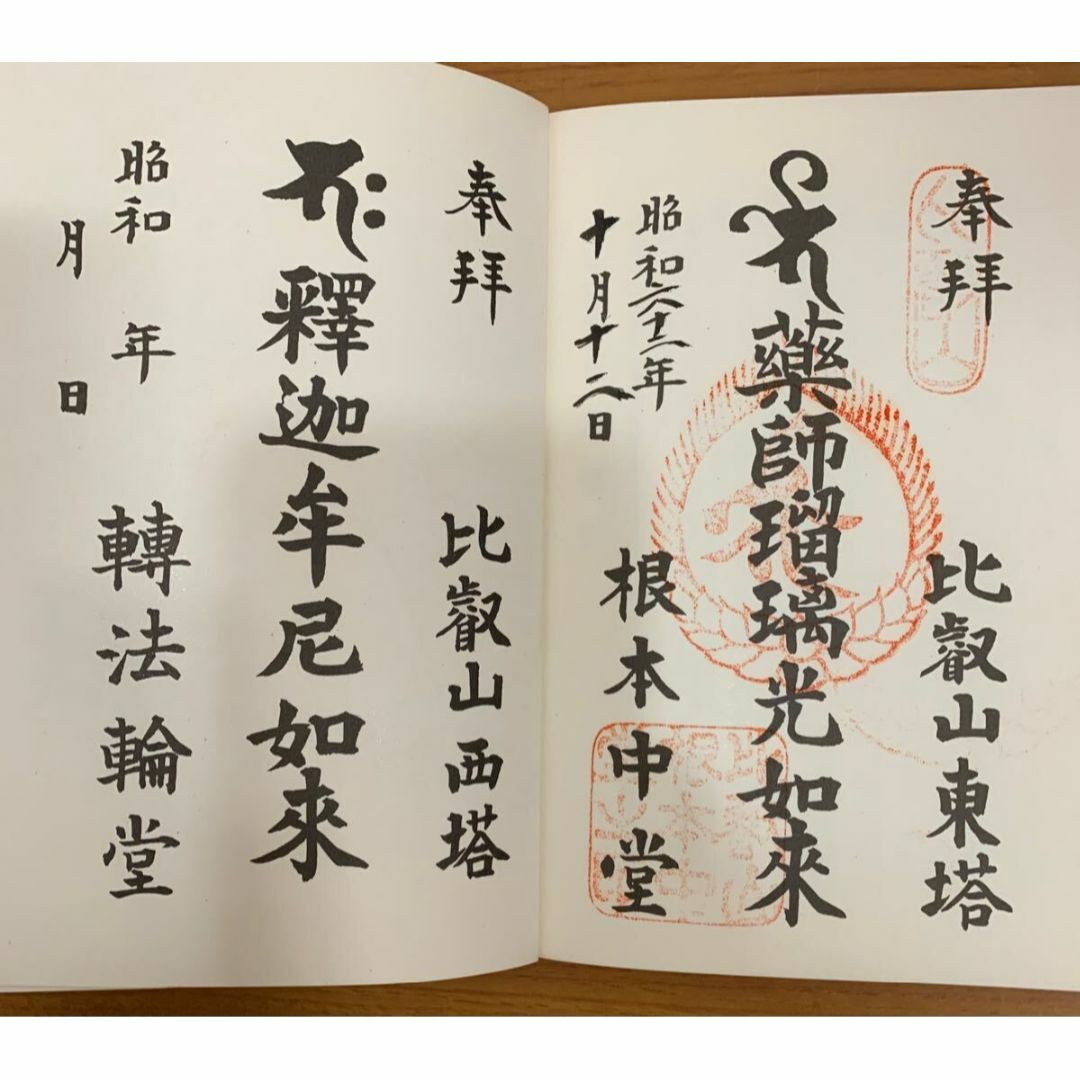 奉拝 比叡山東塔
藥師瑠璃光如來
昭和六十二年
十月十二日
根本中堂
奉拝 比叡山西塔
釋迦牟尼如來
昭和 年
月 日
轉法輪堂